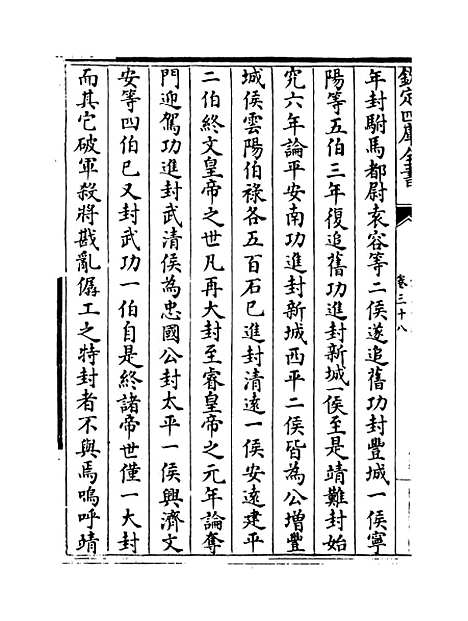 欽定四庫全書
卷三十八
年封駙馬都尉袁容等二侯遂追舊功封豐城一侯寧
陽等五伯三年復追舊功進封新城一侯至是靖難封始
究六年論平安南功進封新城西平二侯皆為公增豐
城侯雲陽伯祿各五百石已進封清遠一侯安遠建平
二伯終文皇帝之世凡再大封至睿皇帝之元年論奪
門迎駕功進封武清侯為忠國公封太平一侯興濟文
安等四伯已又封武功一伯自是終諸帝世僅一大封
而其它破軍殺將戡亂僝工之特封者不與焉嗚呼靖